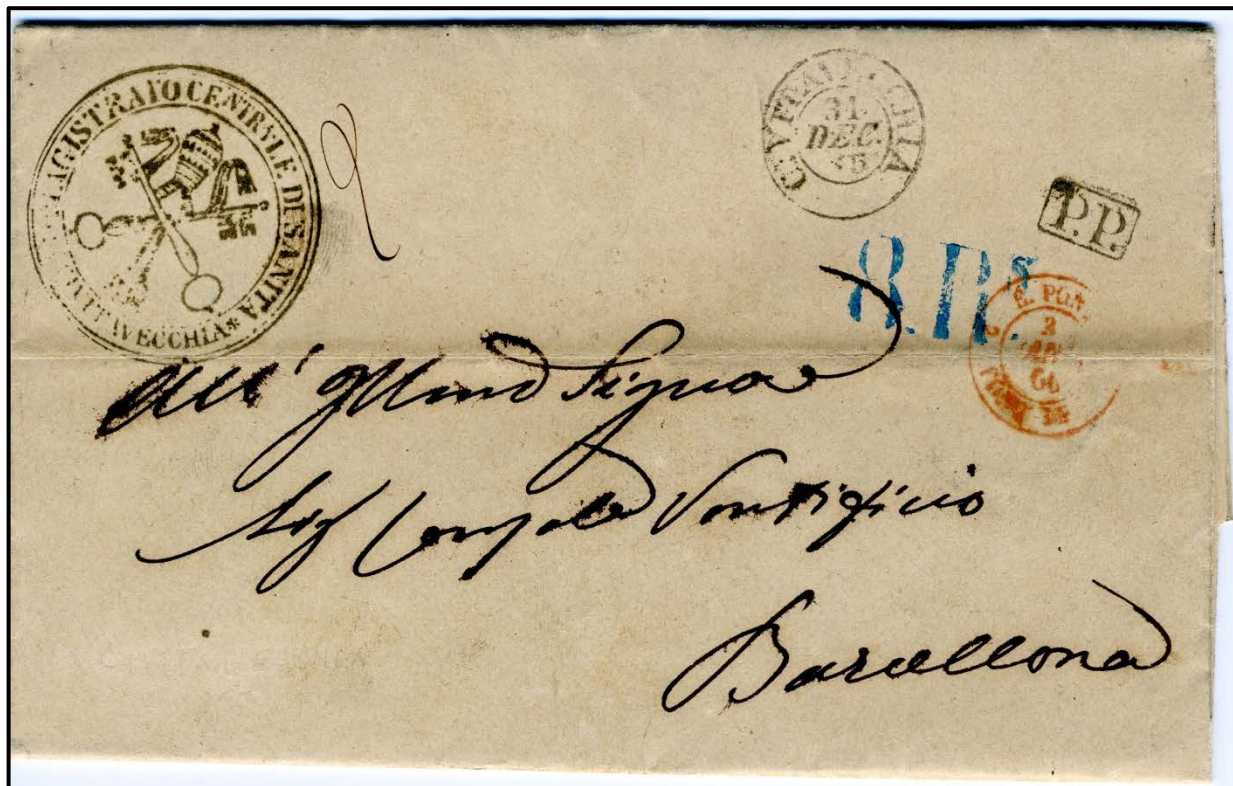 MAGISTRATO CENTRALE DI SANITA
CIVITAVECCHIA *
CIVITAVECCHIA
31
DEC.
65
P.P.
8 Rs.
3
66
All' Illmo Signor
Sig Console Pontificio
Barcellona